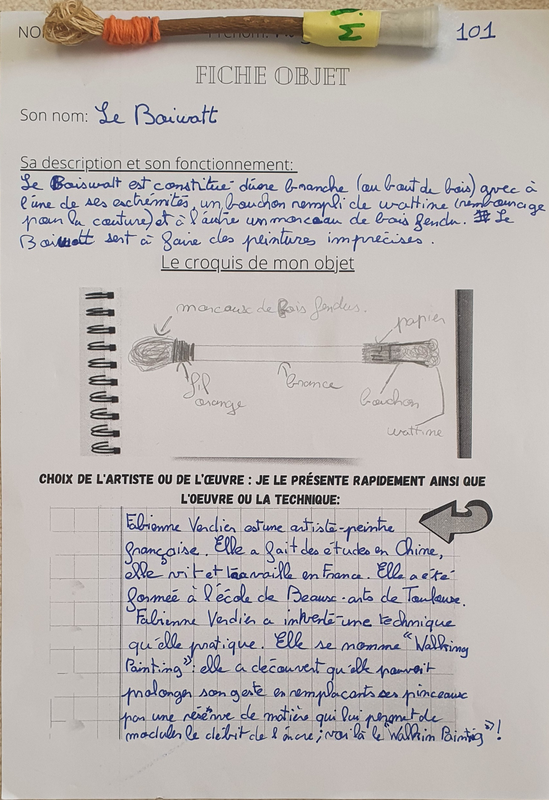 NO
Prénom:
M.
101
FICHE OBJET
Son nom: Le Boiwatt
Sa description et son fonctionnement:
Le Boiswatt est constitué d'une branche (ou bout de bois) avec à
l'une de ses extrémités, un bouchon rempli de wattine (rembourrage
pour la couture) et à l'autre un morceau de bois fendu. Le
Boiwatt sert à faire des peintures imprécises.
Le croquis de mon objet
morceaux de Bois fendus.
papier
fil
orange
brance
bouchon
wattine
CHOIX DE L'ARTISTE OU DE L'ŒUVRE : JE LE PRÉSENTE RAPIDEMENT AINSI QUE
L'OEUVRE OU LA TECHNIQUE:
Fabienne Verdier est une artiste-peintre
française. Elle a fait des études en Chine,
elle vit et travaille en France. Elle a été
formée à l'école de Beaux-arts de Toulouse.
Fabienne Verdier a inventé une technique
qu'elle pratique. Elle se nomme "Walking
Painting": elle a découvert qu'elle pouvait
prolonger son geste en remplaçants ses pinceaux
par une réserve de matière qui lui permet de
moduler le débit de l'encre; voilà le "Walkin Painting"!